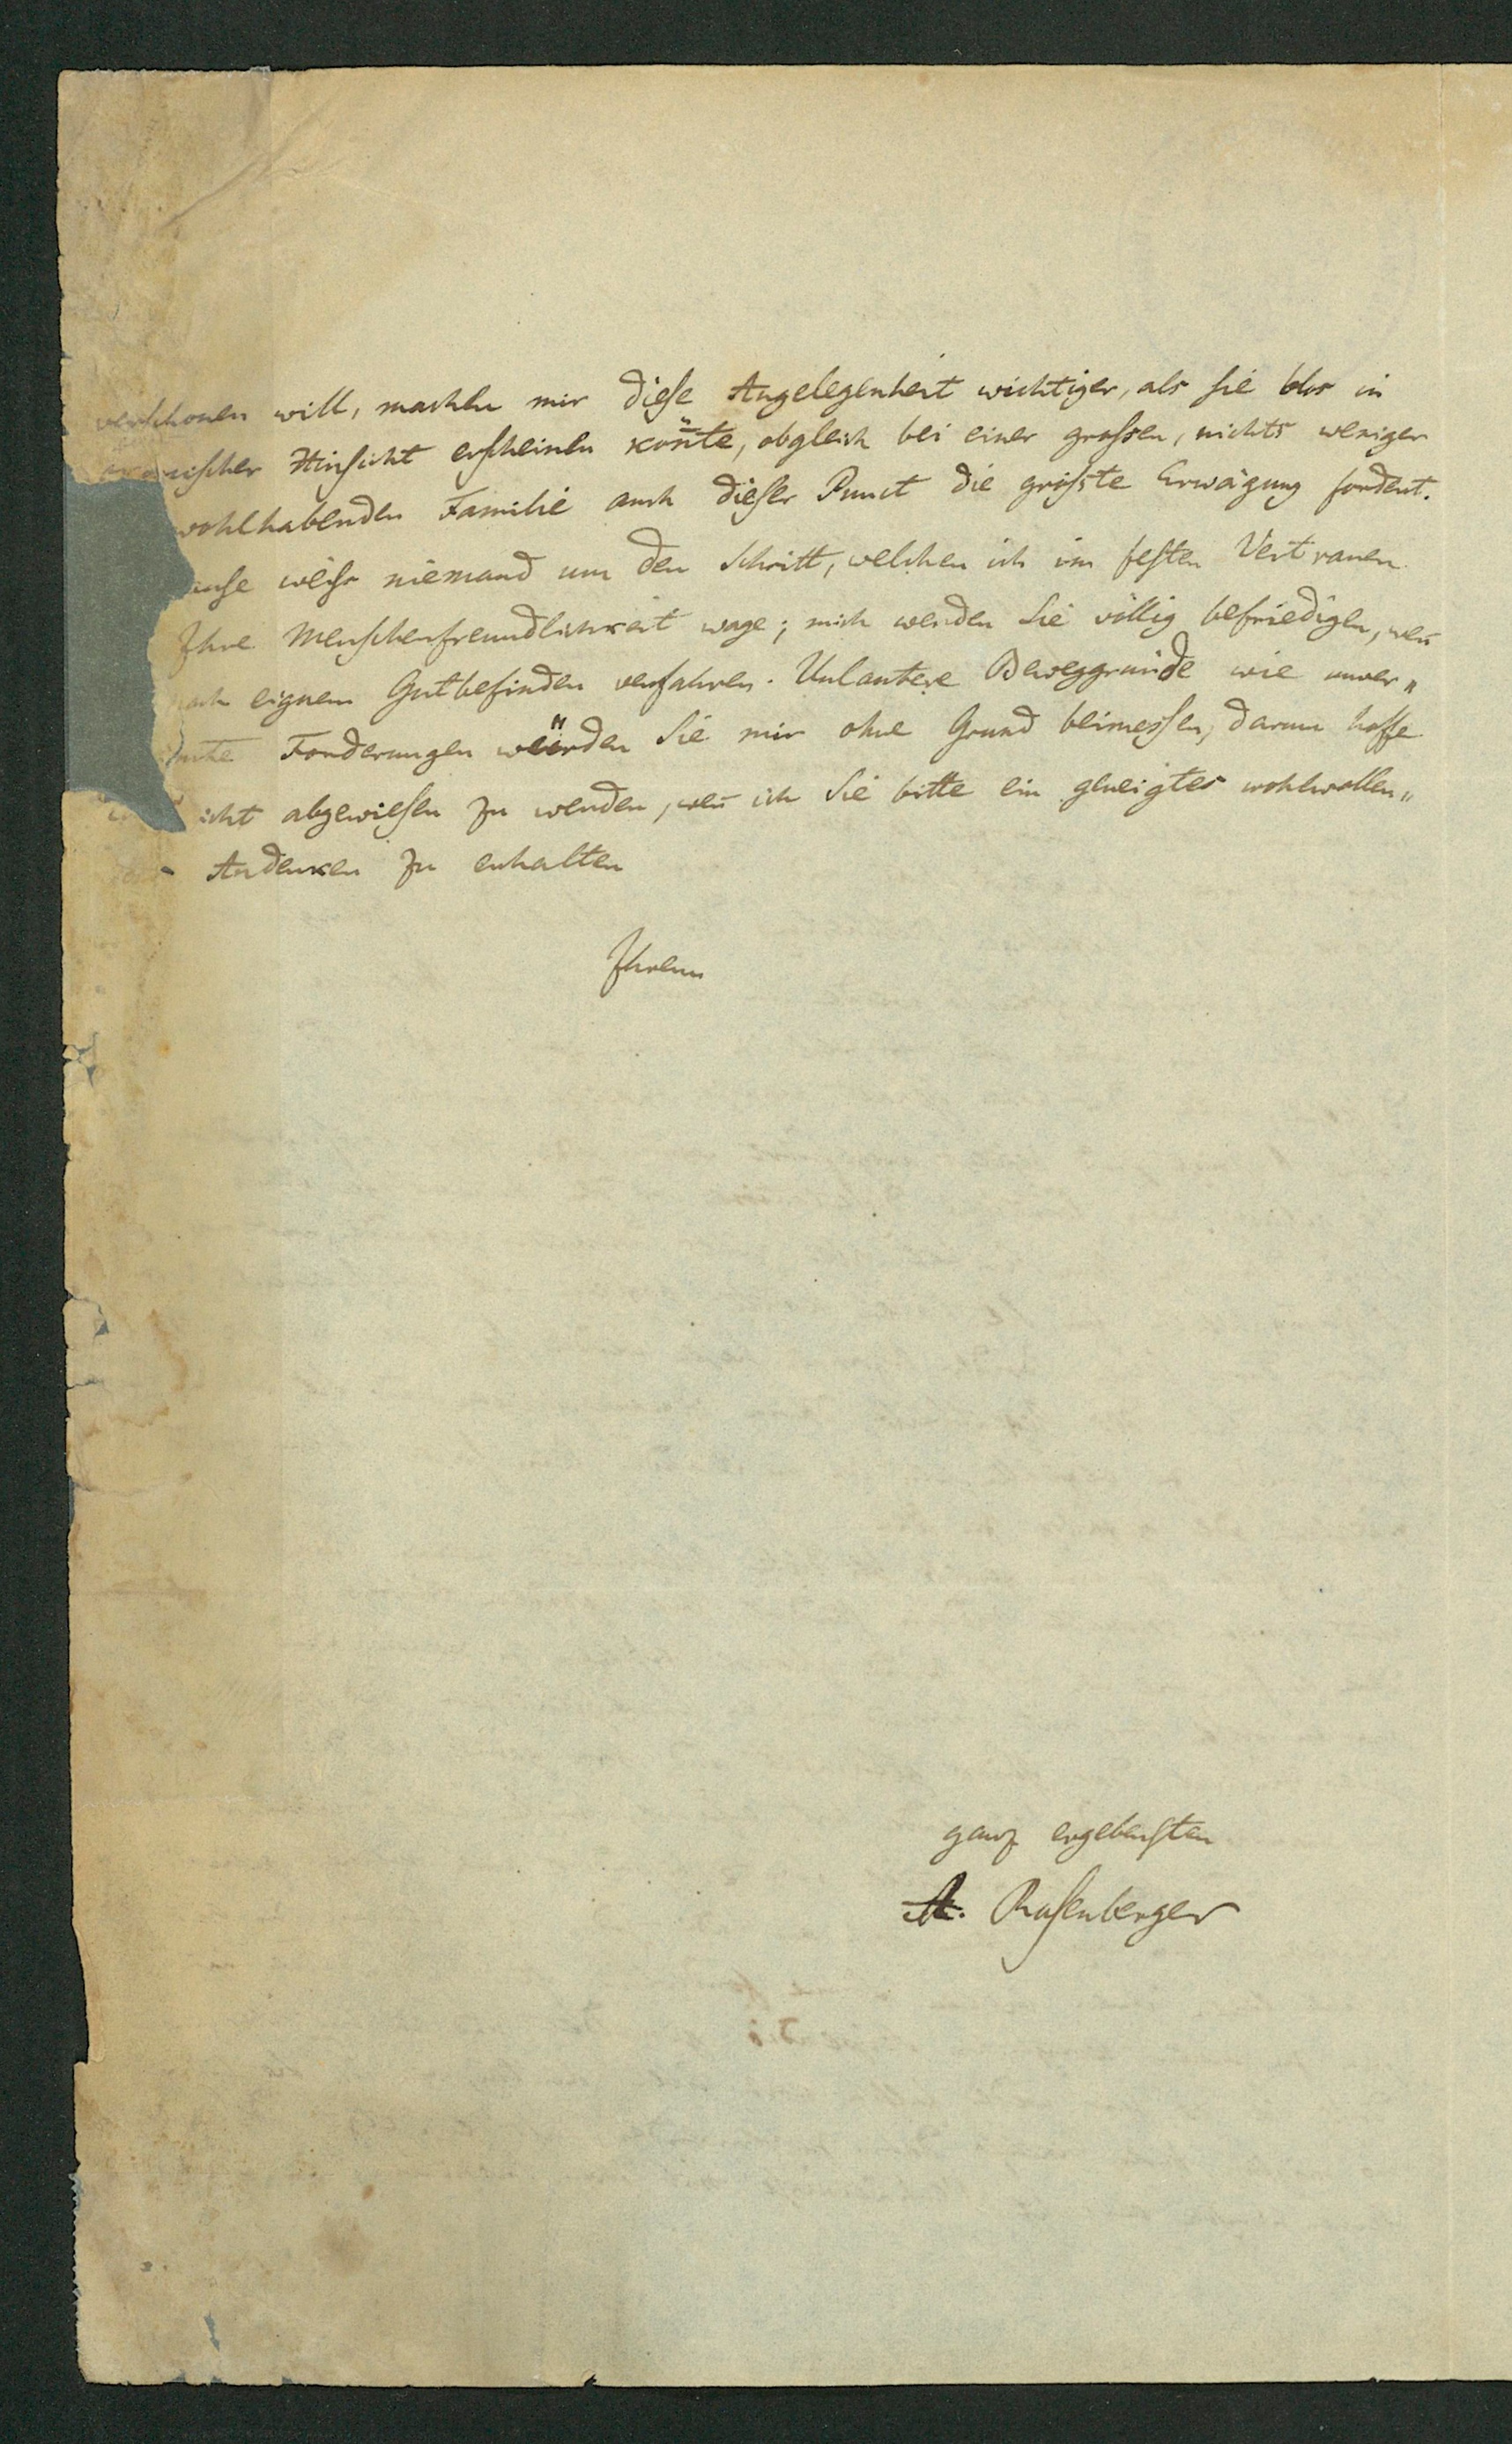 verschonen will, machen mir diese Angelegenheit wichtiger, als sie blos in
ökonomischer Hinsicht erscheinen kön̄te, obgleich bei einer grossen, nichts weniger
wohlhabenden Familie auch dieser Punct die grösste Erwägung fordert.
ause weiss niemand um den Schritt, welchen ich im festen Vertrauen
Ihre Menschenfreundlichkeit wage; mich werden Sie völlig befriedigen, wen̄
nach eignem Gutbefinden verfahren. Unlautere Beweggründe wie unver„
ämte Forderungen würden Sie mir ohne Grund beimessen, darum hoffe
icht abgewiesen zu werden, wen̄ ich Sie bitte ein geneigtes wohlwollen„
Andenken zu erhalten
Ihrem
ganz ergebensten
A. Rosenberger